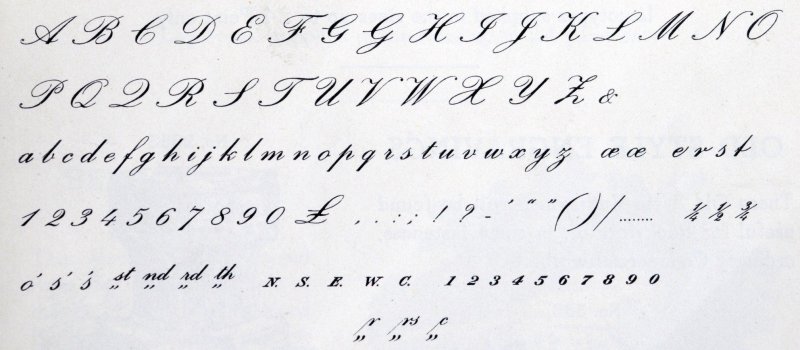 A B C D E F G G H I J K L M N O
P Q Q R S T U V W X Y Z &
a b c d e f g h i j k l m n o p q r s t u v w x y z æ œ e r s t
1 2 3 4 5 6 7 8 9 0 £ , . : ; ! ? - ' “ ” ( ) / ........ ¼ ½ ¾
o' s' s' st nd rd th N. S. E. W. C. 1 2 3 4 5 6 7 8 9 0
r rs c